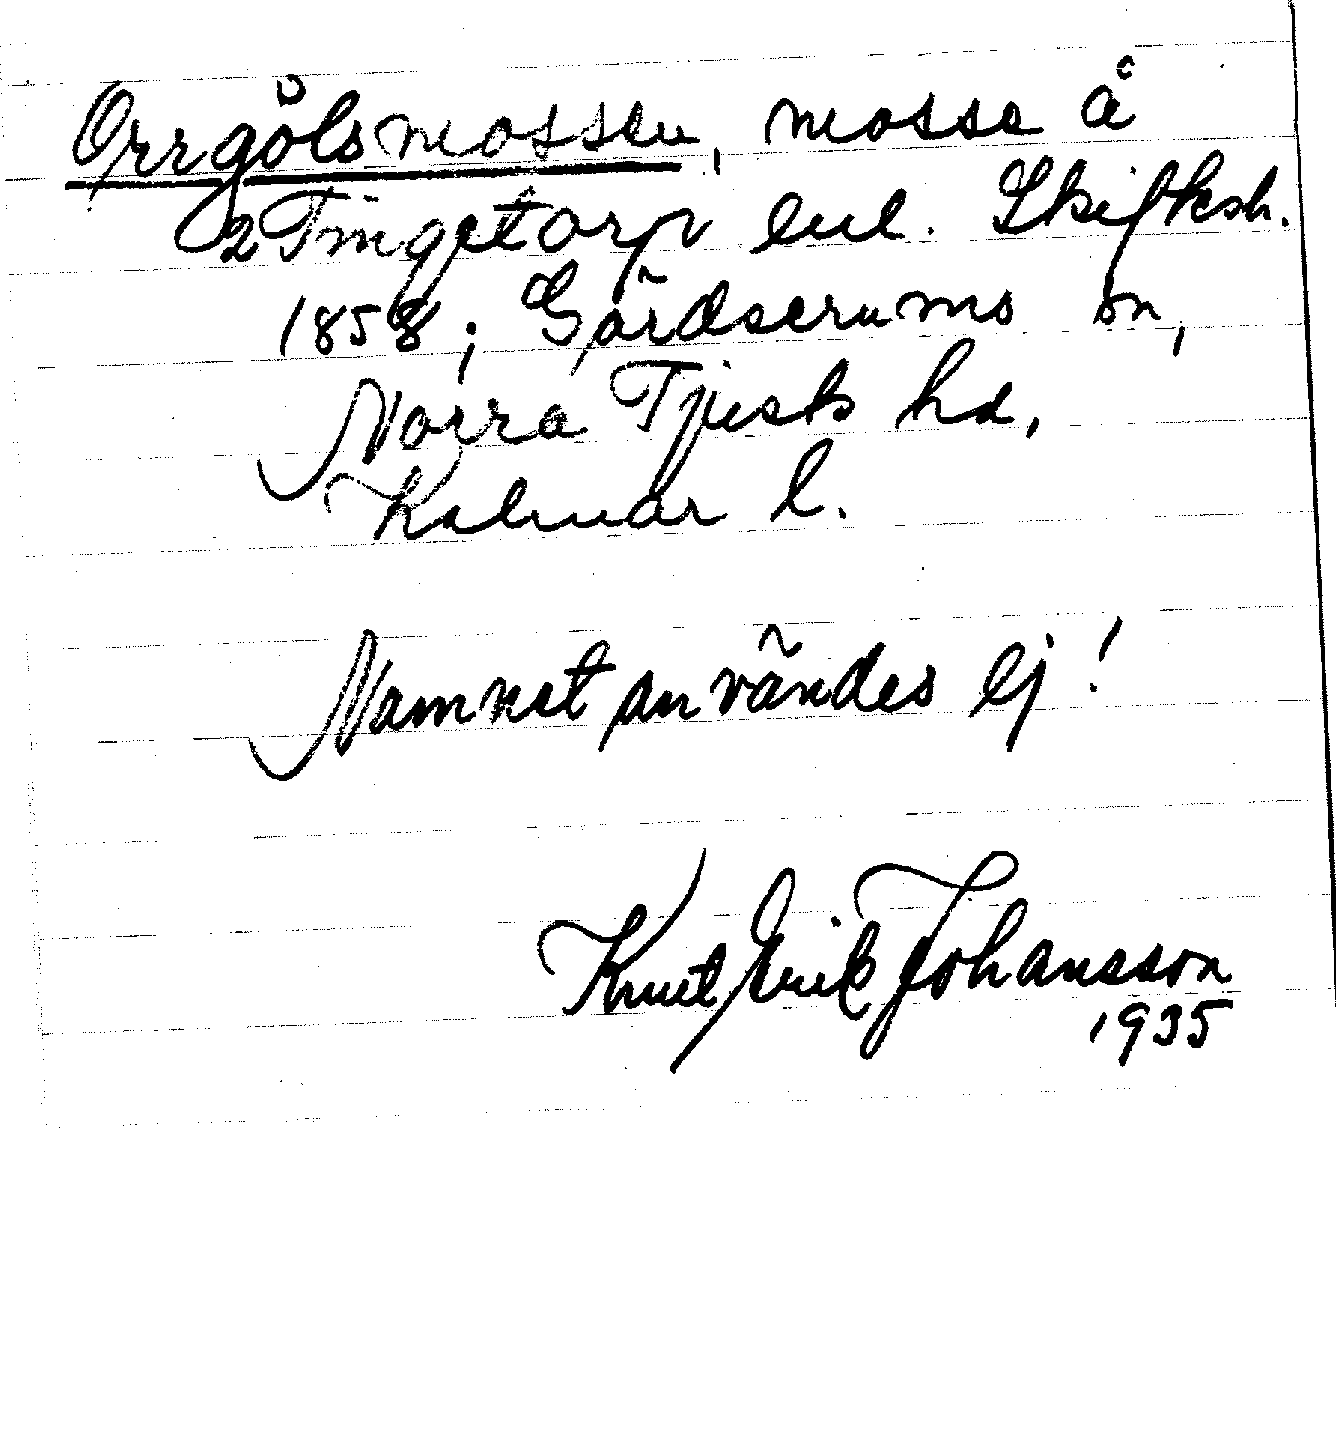 Orrgölsmossen, mosse å
2 Tingetorp enl. Skifksh.
1858; Gärdserums sn,
Norra Tjusts hd,
Kalmar l.
Namnet användes ej!
Knut Erik Johansson
1935